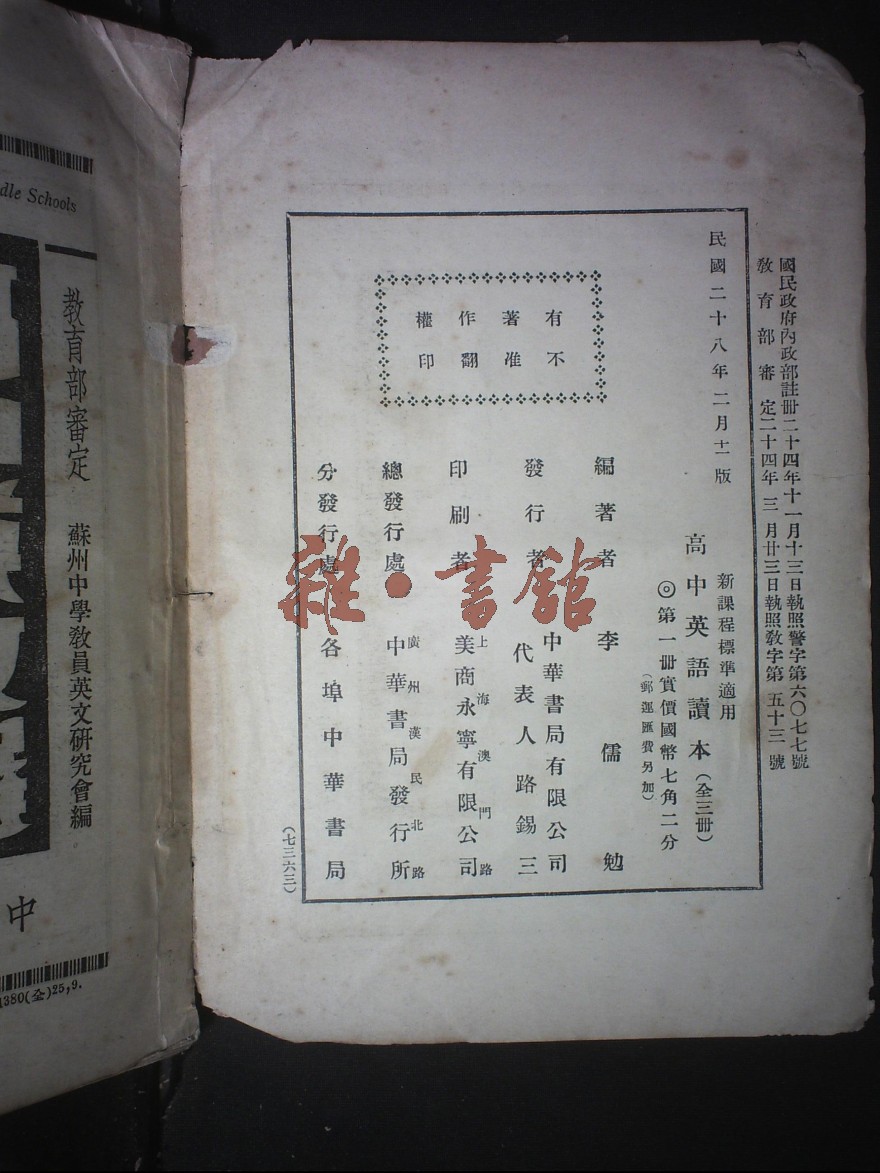 國民政府內政部註冊二十四年十一月十三日執照警字第六〇七七號
教育部審定二十四年三月廿三日執照教字第五十三號
民國二十八年二月十一版
有著作權
不准翻印
新課程標準適用
高中英語讀本（全三冊）
◎第一冊實價國幣七角二分
（郵運匯費另加）
編著者 李儒勉
發行者 中華書局有限公司
代表人路錫三
印刷者 上海澳門路
美商永寧有限公司
總發行處 廣州漢民北路
中華書局發行所
分發行處 各埠中華書局
（七三六三）
雜·書館
dle Schools
教育部審定
蘇州中學教員英文研究會編
中
1380(全)25,9.